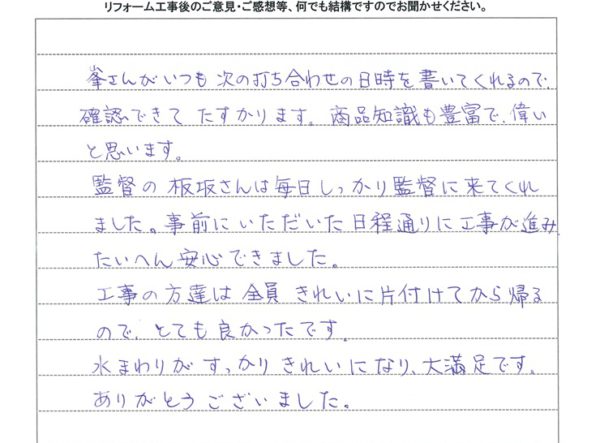 リフォーム工事後のご意見・ご感想等、何でも結構ですのでお聞かせください。
峯さんがいつも次の打ち合わせの日時を書いてくれるので、
確認できてたすかります。商品知識も豊富で、偉い
と思います。
監督の板坂さんは毎日しっかり監督に来てくれ
ました。事前にいただいた日程通りに工事が進み
たいへん安心できました。
工事の方達は全員きれいに片付けてから帰る
ので、とても良かったです。
水まわりがすっかりきれいになり、大満足です。
ありがとうございました。